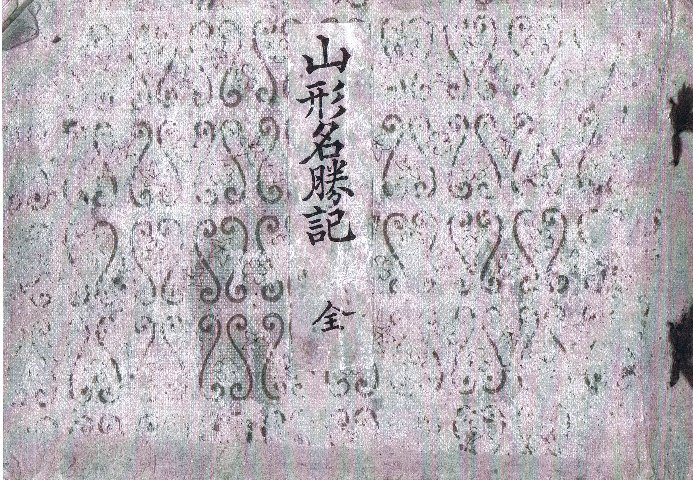 山形名勝記 全